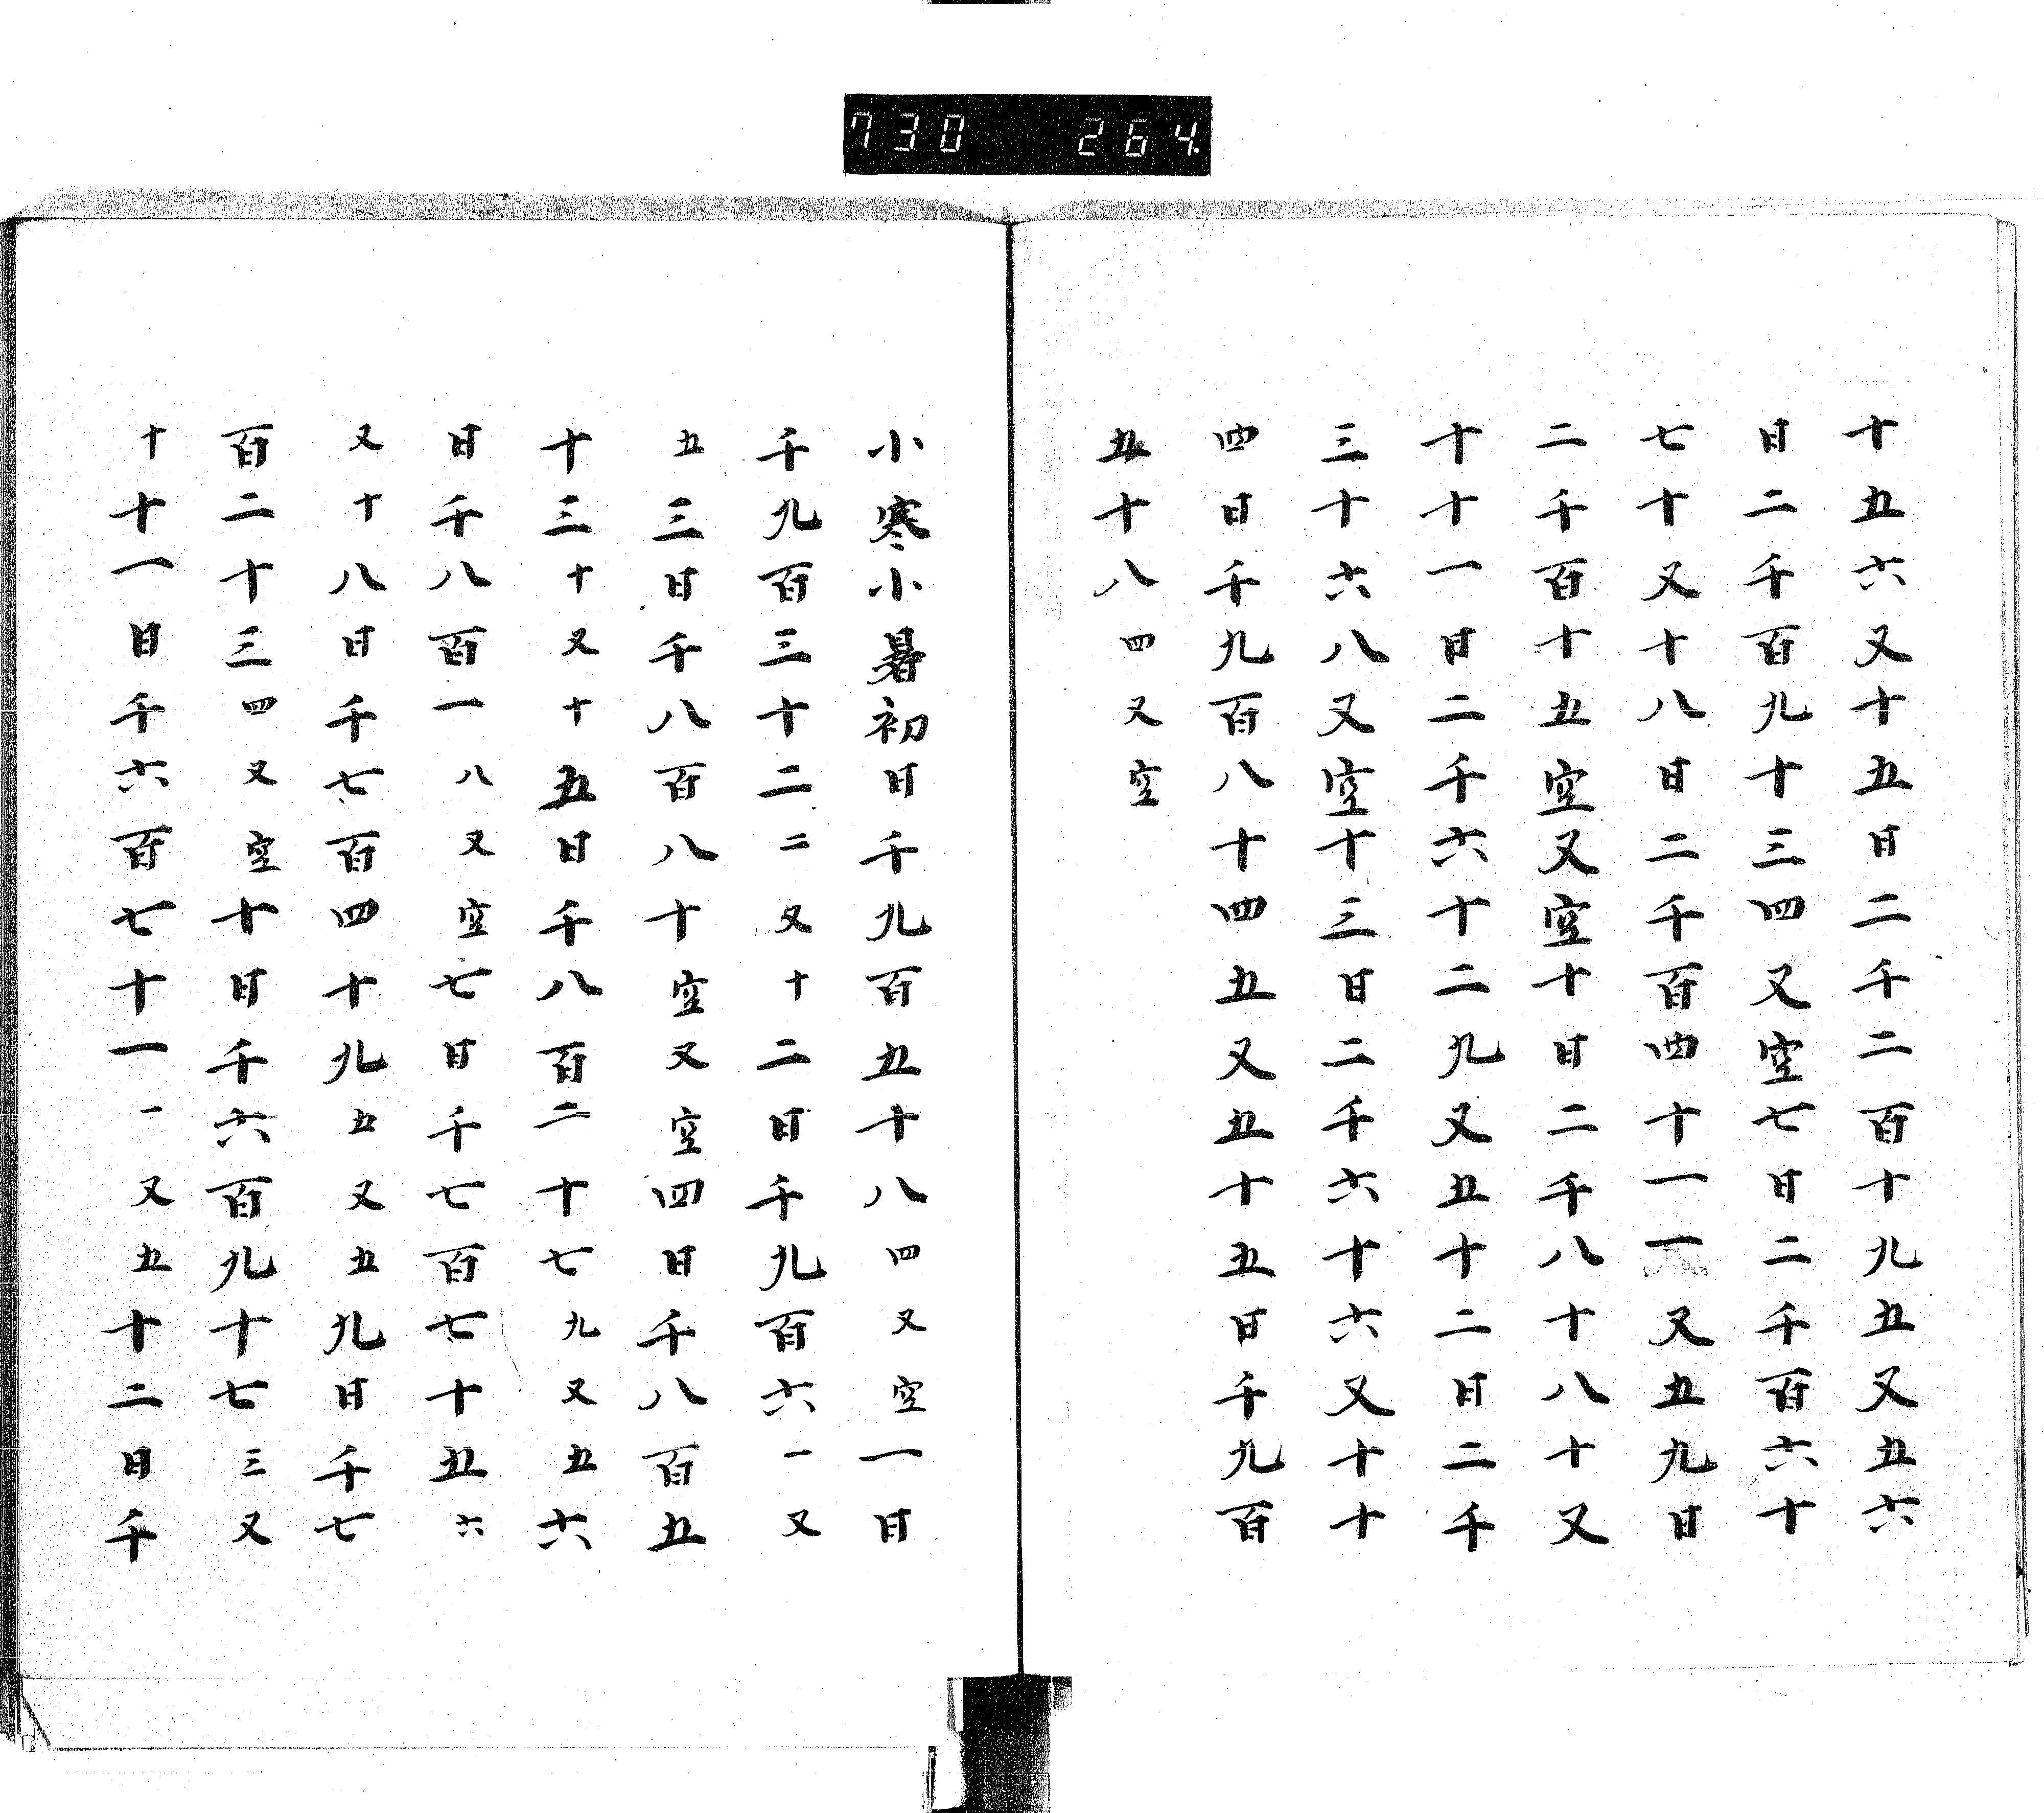 730 264
十五六又十五日二千二百十九五又五六
日二千百九十三四又空七日二千百六十
七十又十八日二千百四十一一又五九日
二千百十五空又空十日二千八十八十又
十十一日二千六十二九又五十二日二千
三十六八又空十三日二千六十六又十十
四日千九百八十四五又五十五日千九百
五十八四又空
小寒小暑初日千九百五十八四又空一日
千九百三十二二又十二日千九百六一又
五三日千八百八十空又空四日千八百五
十三十又十五日千八百二十七九又五六
日千八百一八又空七日千七百七十五六
又十八日千七百四十九五又五九日千七
百二十三四又空十日千六百九十七三又
十十一日千六百七十一一又五十二日千